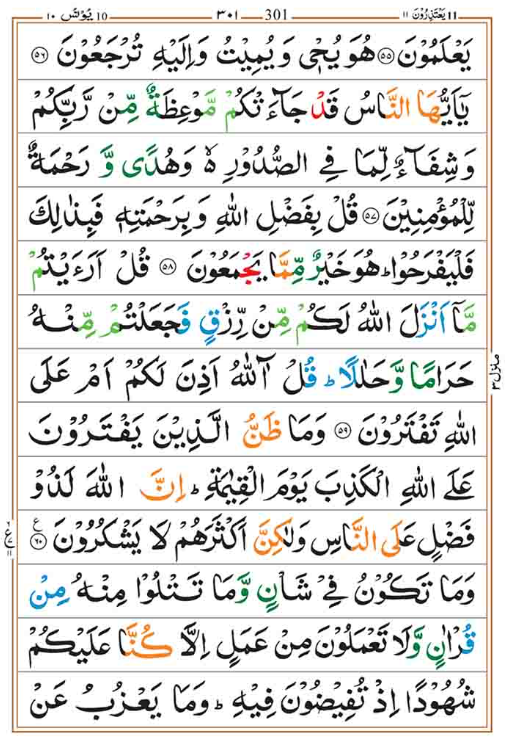 ١١ يَعْتَذِرُوْنَ ١١ ٣٠١ 301 ١٠ يُوْنُس 10
يَعْلَمُوْنَ ﴿٥٥﴾ هُوَ يُحْيٖ وَ يُمِيْتُ وَ اِلَيْهِ تُرْجَعُوْنَ ﴿٥٦﴾
يٰۤاَيُّهَا النَّاسُ قَدْ جَآءَتْكُمْ مَّوْعِظَةٌ مِّنْ رَّبِّكُمْ
وَ شِفَآءٌ لِّمَا فِي الصُّدُوْرِ ۙ۬ وَ هُدًى وَّ رَحْمَةٌ
لِّلْمُؤْمِنِيْنَ ﴿٥٧﴾ قُلْ بِفَضْلِ اللّٰهِ وَ بِرَحْمَتِهٖ فَبِذٰلِكَ
فَلْيَفْرَحُوْا ؕ هُوَ خَيْرٌ مِّمَّا يَجْمَعُوْنَ ﴿٥٨﴾ قُلْ اَرَءَيْتُمْ
مَّاۤ اَنْزَلَ اللّٰهُ لَكُمْ مِّنْ رِّزْقٍ فَجَعَلْتُمْ مِّنْهُ
حَرَامًا وَّ حَلٰلًا ؕ قُلْ آٰللّٰهُ اَذِنَ لَكُمْ اَمْ عَلَى
اللّٰهِ تَفْتَرُوْنَ ﴿٥٩﴾ وَمَا ظَنُّ الَّذِيْنَ يَفْتَرُوْنَ
عَلَى اللّٰهِ الْكَذِبَ يَوْمَ الْقِيٰمَةِ ؕ اِنَّ اللّٰهَ لَذُوْ
فَضْلٍ عَلَى النَّاسِ وَلٰكِنَّ اَكْثَرَهُمْ لَا يَشْكُرُوْنَ ﴿٦٠﴾ ع
وَمَا تَكُوْنُ فِيْ شَاْنٍ وَّمَا تَتْلُوْا مِنْهُ مِنْ
قُرْاٰنٍ وَّلَا تَعْمَلُوْنَ مِنْ عَمَلٍ اِلَّا كُنَّا عَلَيْكُمْ
شُهُوْدًا اِذْ تُفِيْضُوْنَ فِيْهِ ؕ وَمَا يَعْزُبُ عَنْ
منزل ٣